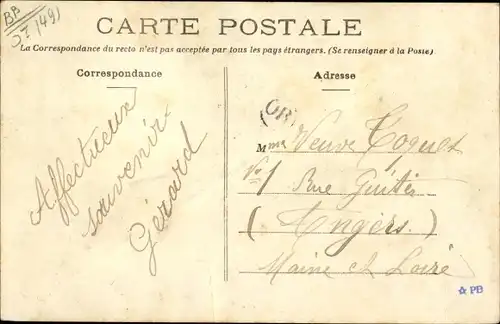 BB
CARTE POSTALE
La Correspondance du recto n'est pas acceptée par tous les pays étrangers. (Se renseigner à la Poste).
Correspondance
Affectueux
souvenir
Gérard
Adresse
OR
Mme Veuve Toquet
Rue
(Angers.)
Maine et Loire
PB